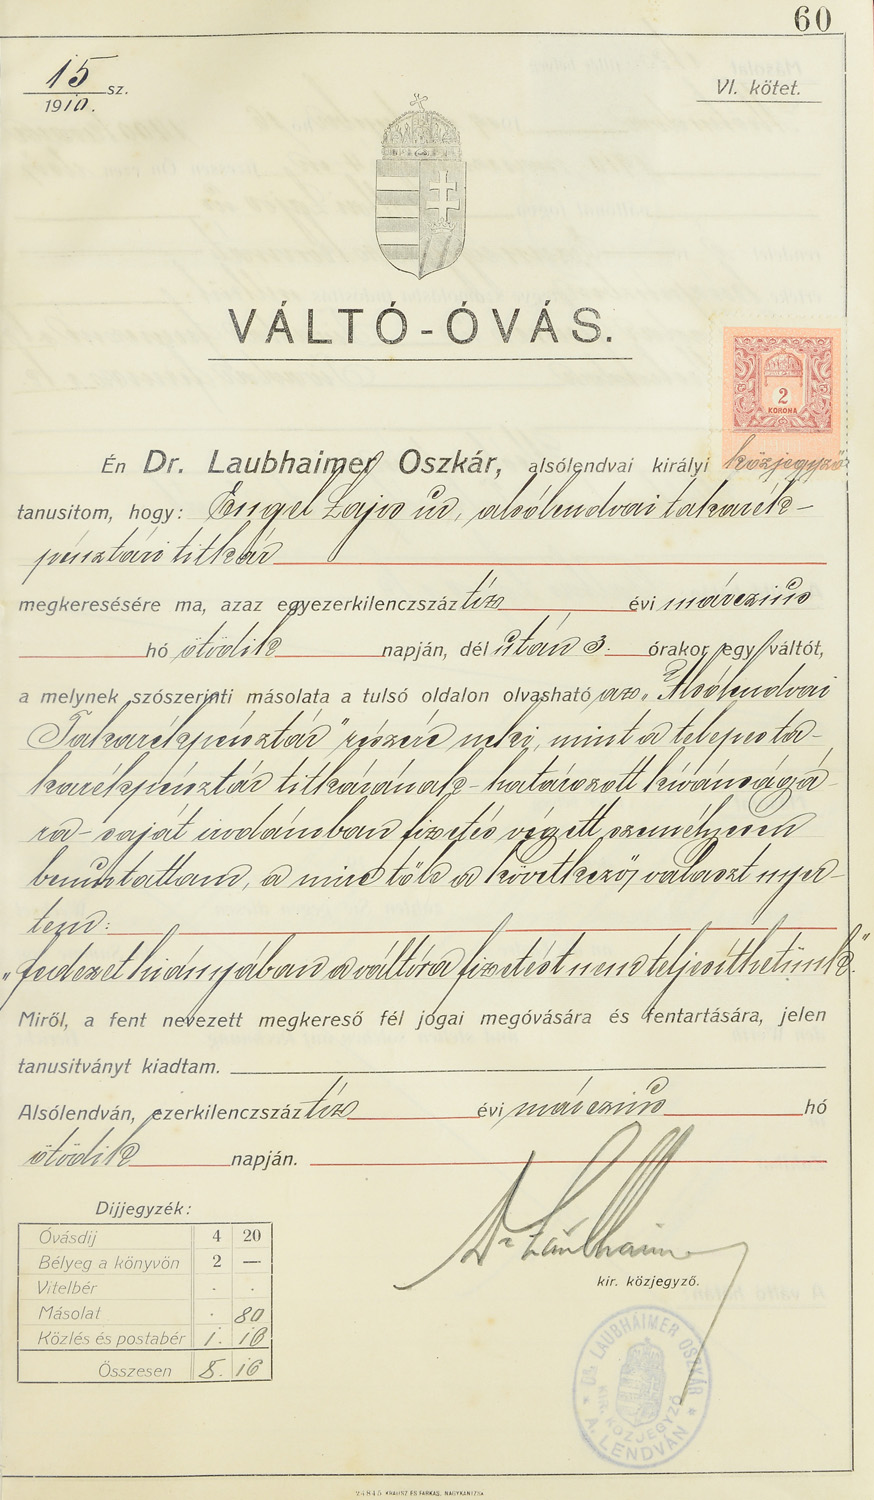 60
15 sz.
1910.
VI. kötet.
VÁLTÓ-ÓVÁS.
2
KORONA
Én Dr. Laubhaimer Oszkár, alsólendvai királyi közjegyző
tanusitom, hogy: Engel Lajos úr, alsólendvai takarék-
pénztári titkár
megkeresésére ma, azaz egyezerkilenczszáz tíz évi márczius
hó ötödik napján, dél után 3. órakor egy váltót,
a melynek szószerinti másolata a tulsó oldalon olvasható az „Alsólendvai
Takarékpénztár" részére neki, mint a telepes ta-
karékpénztár titkárának - határozott kívánságá-
ra - saját irodámban fizetés végett személyesen
bemutattam, a mire tőle a következő választ nyer-
tem:
„fedezet hiányában a váltóra fizetést nem teljesíthetünk."
Miről, a fent nevezett megkereső fél jogai megóvására és fentartására, jelen
tanusitványt kiadtam.
Alsólendván, ezerkilenczszáz tíz évi márczius hó
ötödik napján.
Dr Laubhaimer
kir. közjegyző.
Dijjegyzék:
Óvásdij 4 20
Bélyeg a könyvön 2 —
Vitelbér . .
Másolat . 80
Közlés és postabér 1. 16
Összesen 8. 16
DR. LAUBHÁIMER OSZKÁR
KÖZJEGYZŐ
A. LENDVÁN
24845 KRAUSZ ÉS FARKAS, NAGYKANIZSA